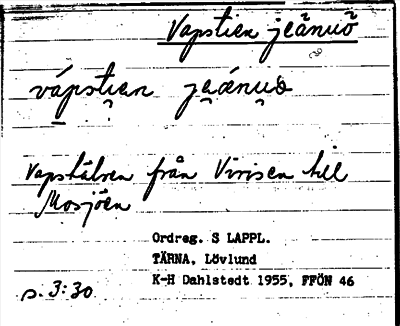 Vapstien jeänuõ
vápstien jeänuo
Vapstälven från Virisen till
Mosjöen
Ordreg. S LAPPL.
TÄRNA, Lövlund
K-H Dahlstedt 1955, FFÖN 46
s. 3:30